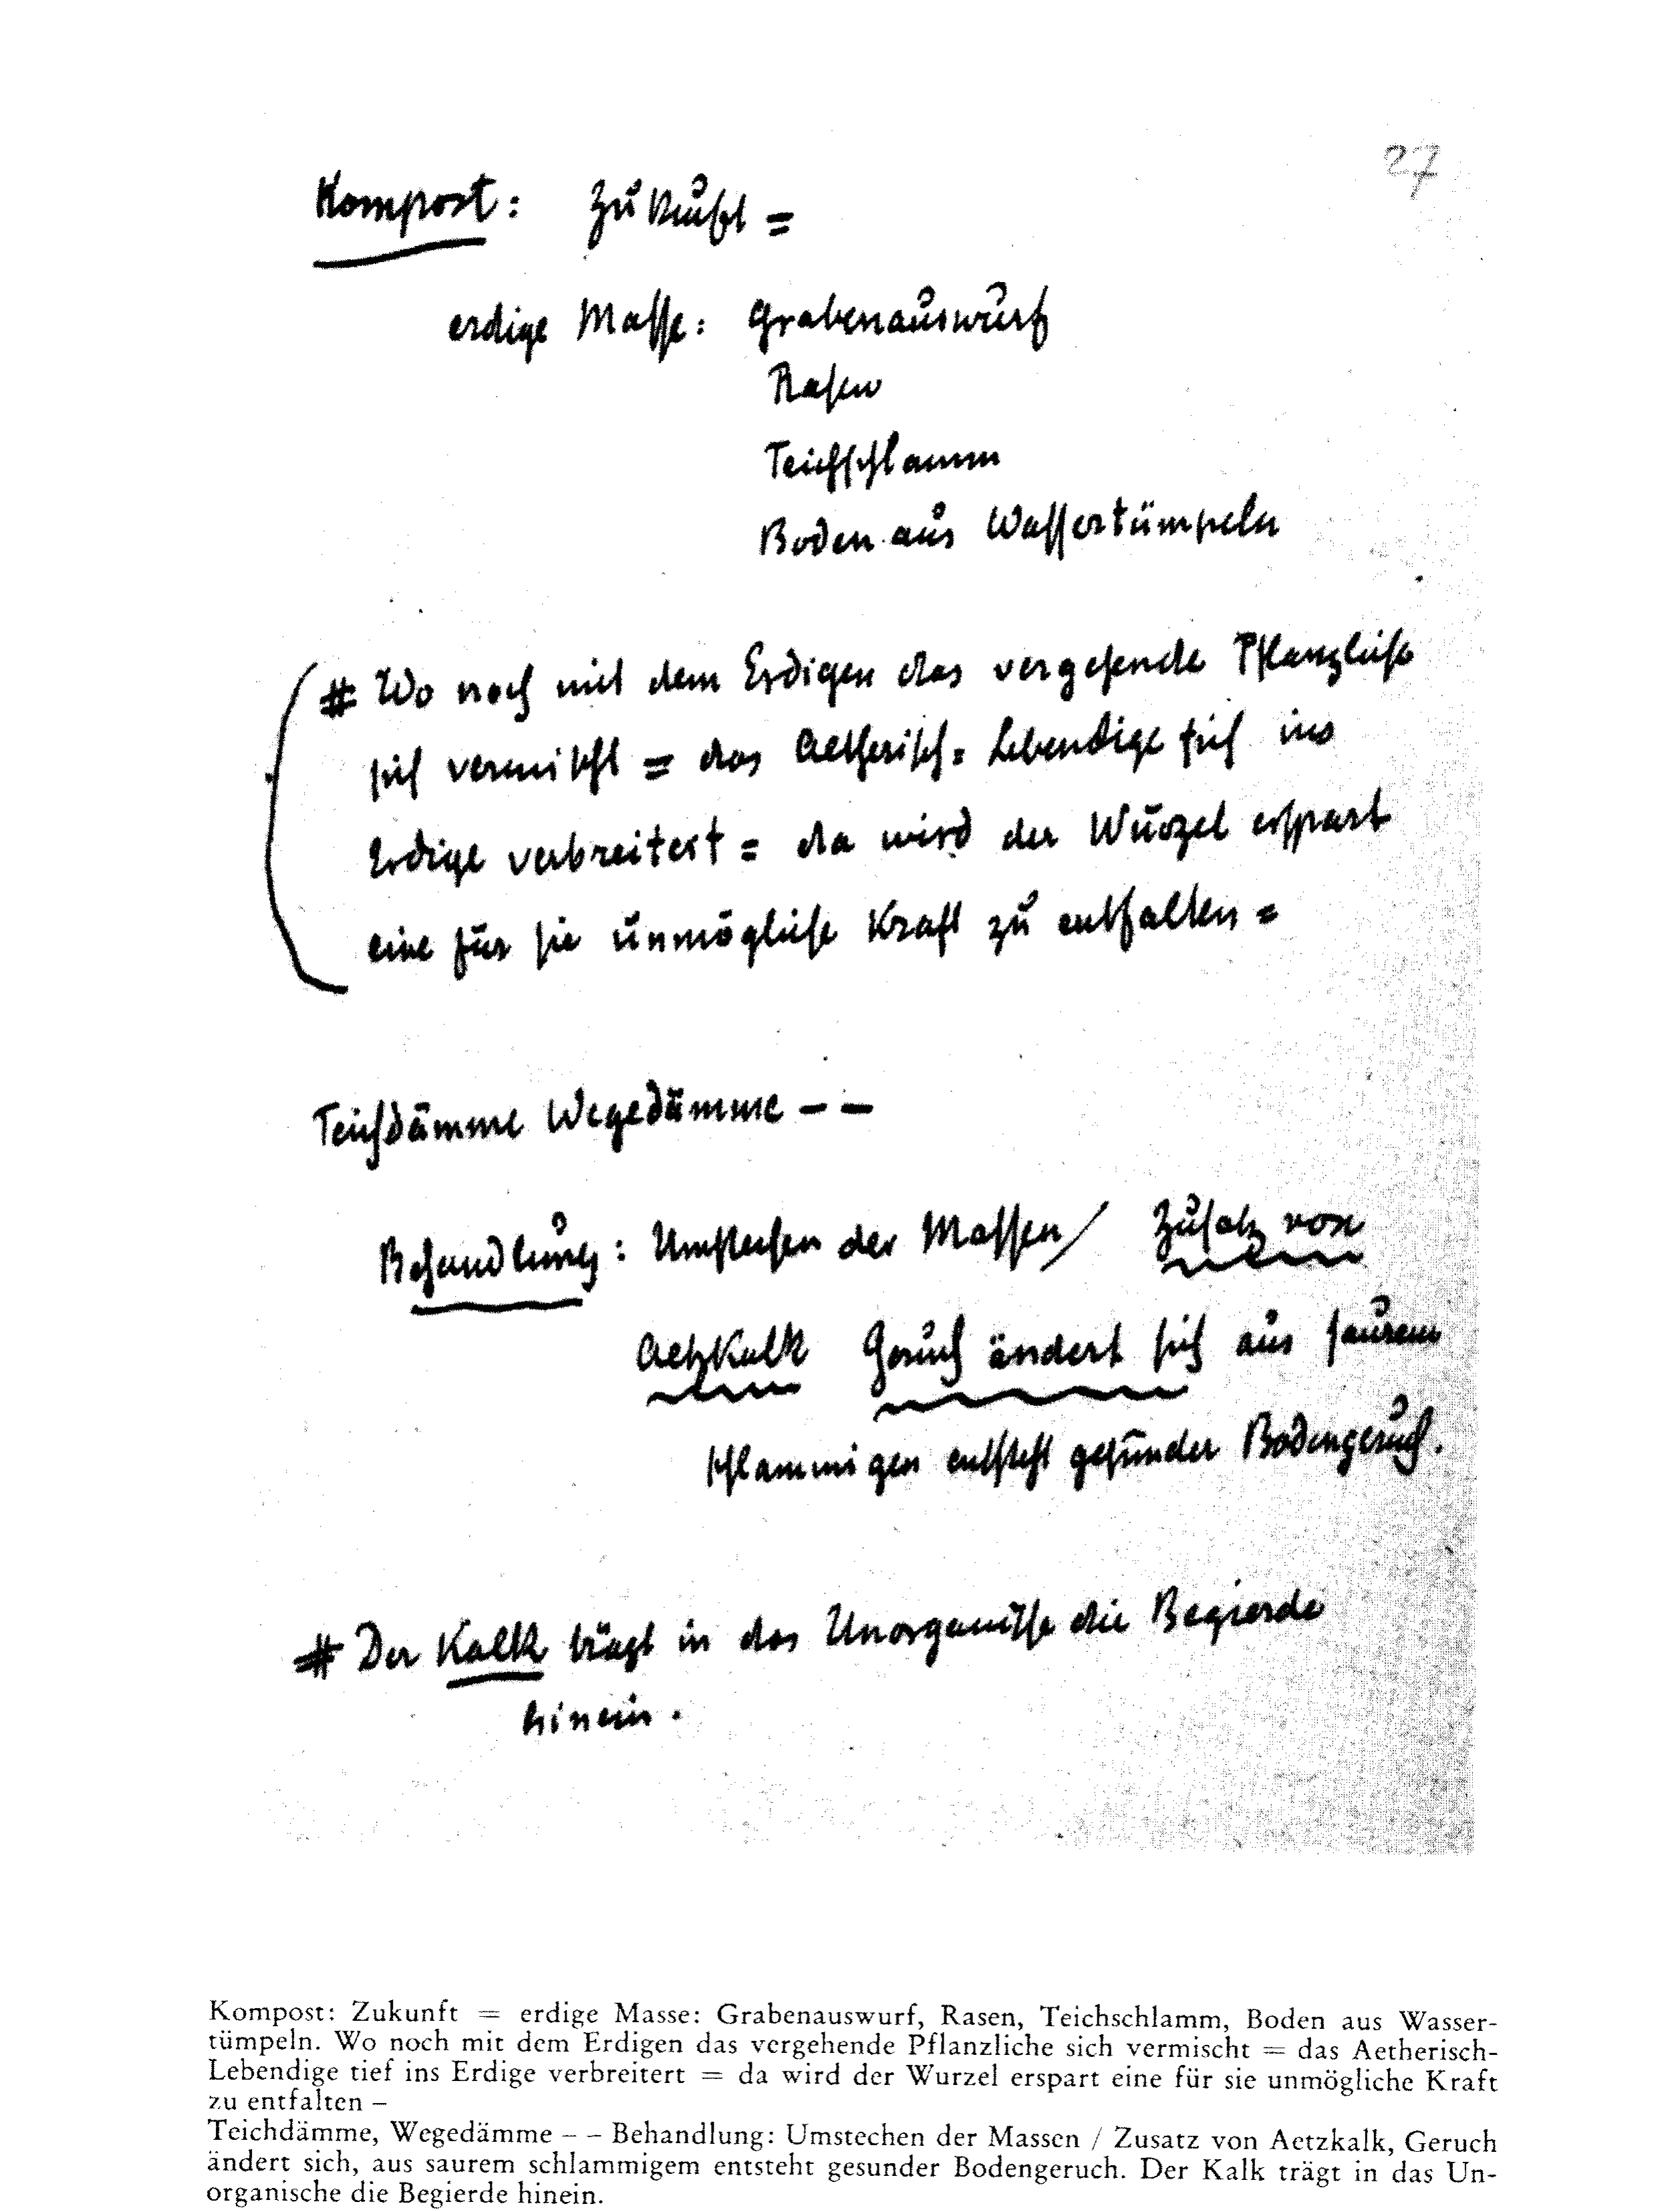 27
Kompost: Zukunft =
erdige Masse: Grabenauswurf
Rasen
Teichschlamm
Boden aus Wassertümpeln
# Wo noch mit dem Erdigen das vergehende Pflanzliche
sich vermischt = das Aetherisch= Lebendige sich ins
Erdige verbreitert = da wird der Wurzel erspart
eine für sie unmögliche Kraft zu entfalten =
Teichdämme Wegedämme – –
Behandlung: Umstechen der Massen / Zusatz von
Aetzkalk Geruch ändert sich aus saurem
schlammigen entsteht gesunder Bodengeruch.
# Der Kalk trägt in das Unorganische die Begierde
hinein.
Kompost: Zukunft = erdige Masse: Grabenauswurf, Rasen, Teichschlamm, Boden aus Wasser-
tümpeln. Wo noch mit dem Erdigen das vergehende Pflanzliche sich vermischt = das Aetherisch-
Lebendige tief ins Erdige verbreitert = da wird der Wurzel erspart eine für sie unmögliche Kraft
zu entfalten –
Teichdämme, Wegedämme – – Behandlung: Umstechen der Massen / Zusatz von Aetzkalk, Geruch
ändert sich, aus saurem schlammigem entsteht gesunder Bodengeruch. Der Kalk trägt in das Un-
organische die Begierde hinein.